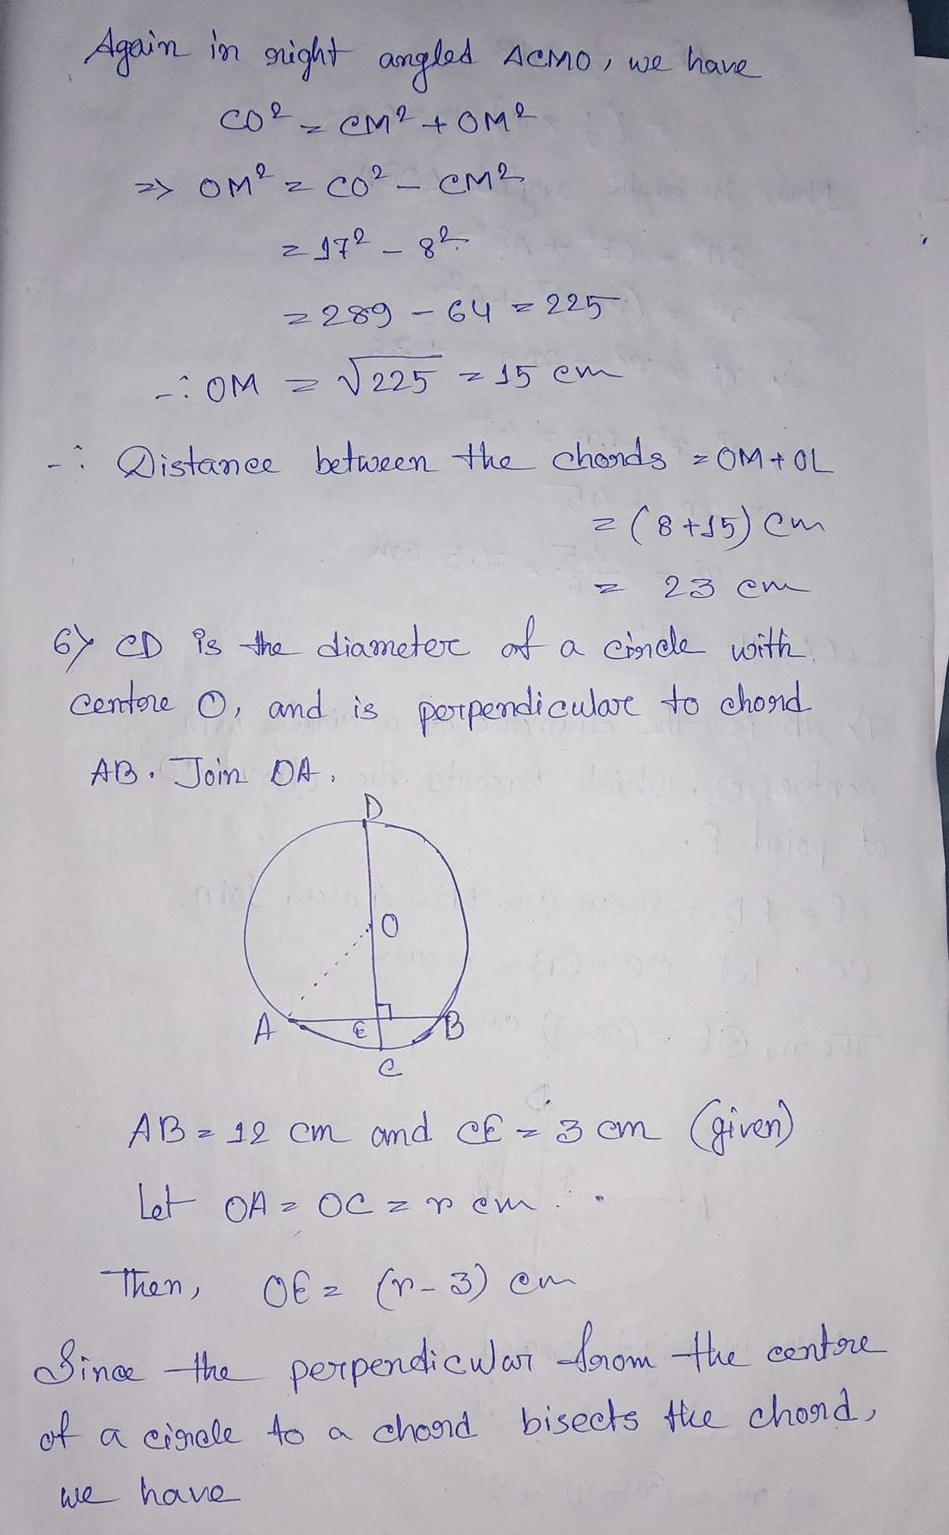 Again in right angled ΔCMO, we have
CO² = CM² + OM²
=> OM² = CO² - CM²
= 17² - 8²
= 289 - 64 = 225
∴ OM = √225 = 15 cm
∴ Distance between the chords = OM + OL
= (8+15) cm
= 23 cm
6) CD is the diameter of a circle with
centre O, and is perpendicular to chord
AB. Join OA.
D
O
A E B
C
AB = 12 cm and CE = 3 cm (given)
Let OA = OC = r cm.
Then, OE = (r-3) cm
Since the perpendicular from the centre
of a circle to a chord bisects the chord,
we have